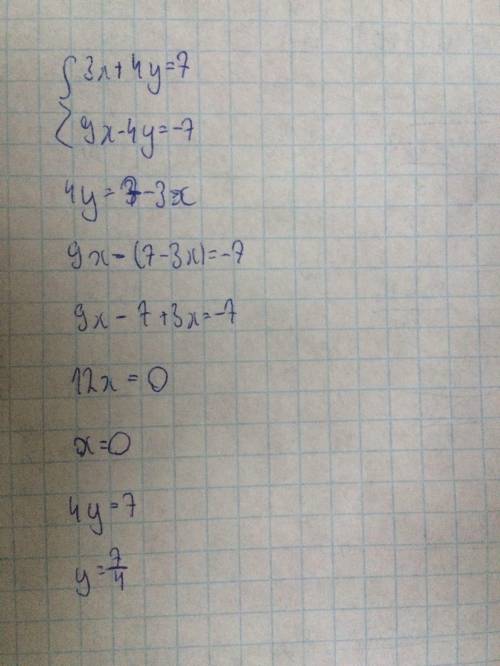 { 3x+4y=7
9x-4y=-7
4y=7-3x
9x-(7-3x)=-7
9x-7+3x=-7
12x=0
x=0
4y=7
y=7/4